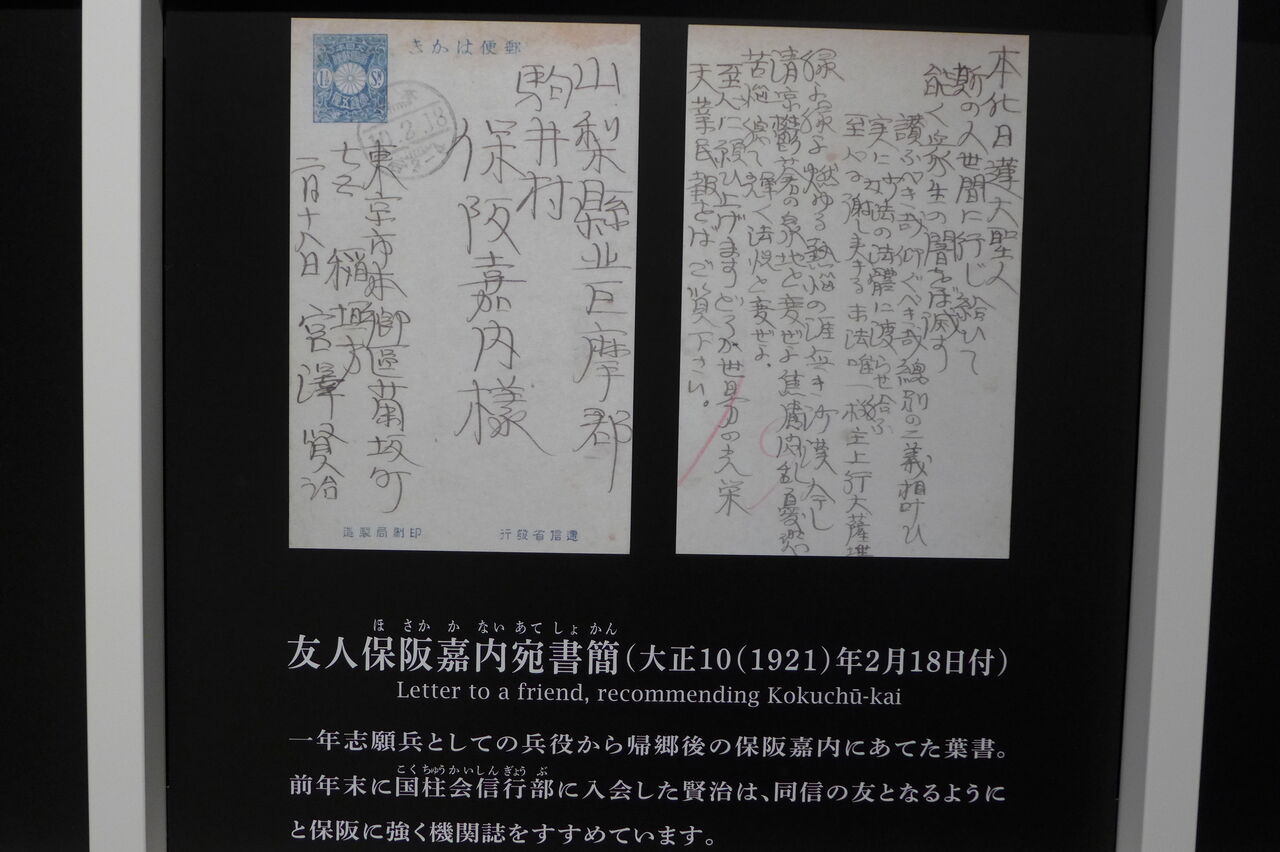 郵便はかき
1½ Sn.
10.2.18
山梨縣北巨摩郡
駒井村
保阪嘉内様
東京市本郷區菊坂町
七五 稲垣方
二月十八日 宮澤賢治
逓信省發行
印刷局製造
本化日蓮大聖人
斯の人世間に行じ給ひて
能く衆生の闇をば滅す
讃ふべき哉仰ぐべき哉總別の二義相叶ひ
実に妙法の法體に渡らせ給ふ
至人に謝し奉る末法唯一 主上行大薩埵
縁よ縁よ燃ゆる熱悩の涯無き沙漠今し
清涼鬱蒼の泉地と変ぜよ焦慮内乱憂悲
苦悩 て輝く法悦と変ぜよ.
至心に願ひ上げますどうか世界の光栄
天業民報をばご覧下さい。
ほさかかないあてしょかん
友人保阪嘉内宛書簡(大正10(1921)年2月18日付)
Letter to a friend, recommending Kokuchū-kai
一年志願兵としての兵役から帰郷後の保阪嘉内にあてた葉書。
こくちゅうかいしんぎょうぶ
前年末に国柱会信行部に入会した賢治は、同信の友となるように
と保阪に強く機関誌をすすめています。